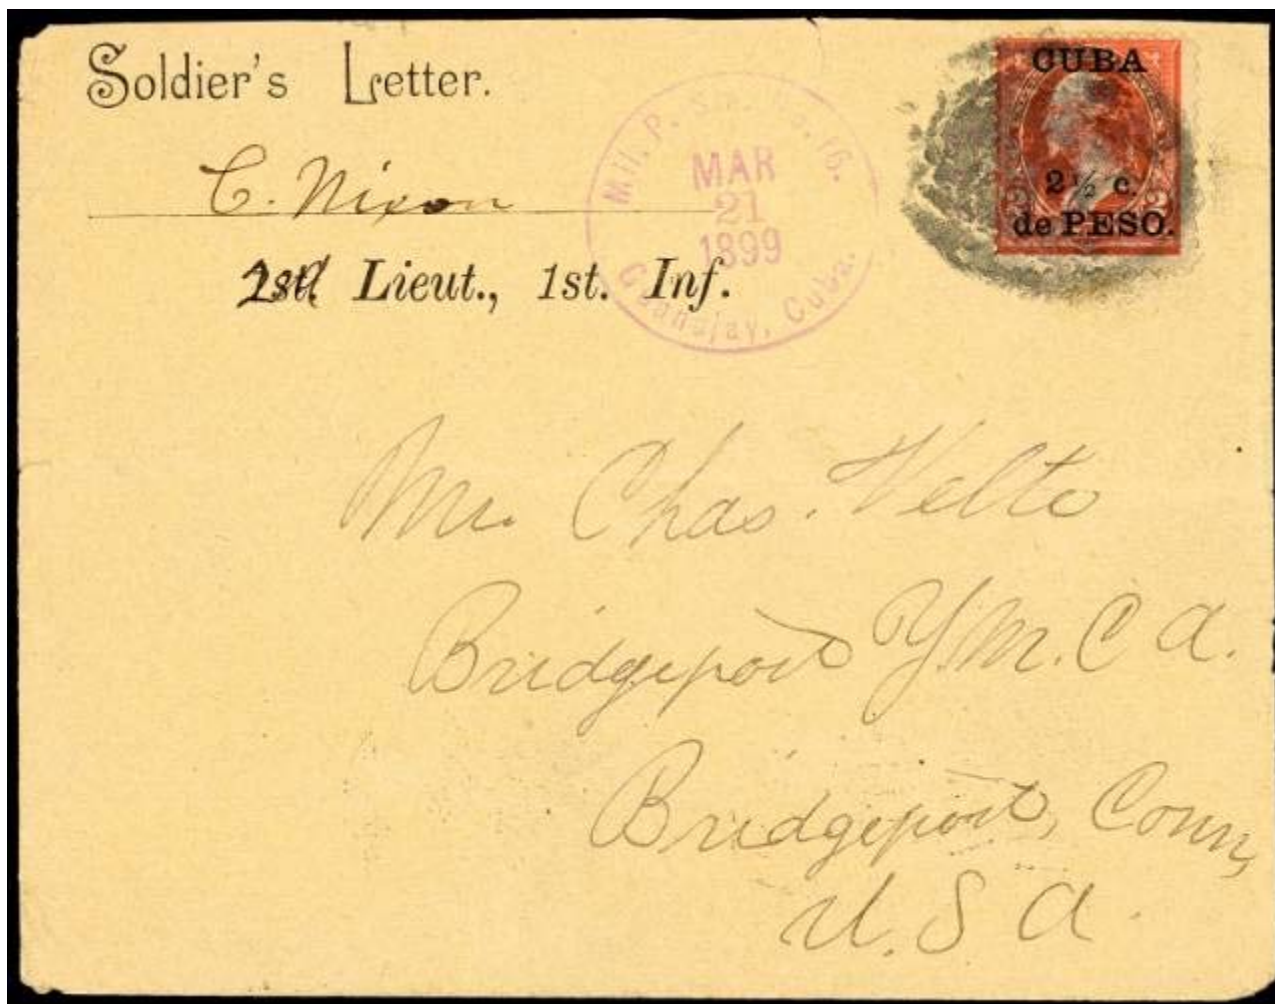 Soldier's Letter.
C. Nixon
2nd Lieut., 1st. Inf.
Mil. P. Sta. No. 16.
MAR
21
1899
Guanajay, Cuba.
CUBA
2
2½ c.
2
de PESO.
Mr. Chas. Velto
Bridgeport Y.M.C A.
Bridgeport, Conn,
U.S A.